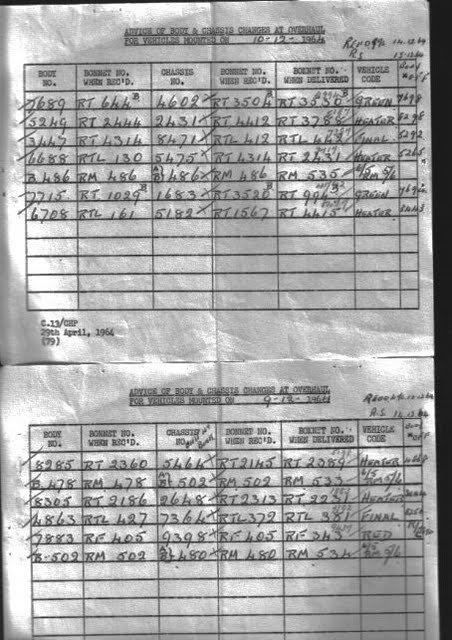 ADVICE OF BODY & CHASSIS CHANGES AT OVERHAUL
FOR VEHICLES MOUNTED ON 10-12-1964
BODY NO. BONNET NO. WHEN REC'D. CHASSIS NO. BONNET NO. WHEN REC'D. BONNET NO. WHEN DELIVERED VEHICLE CODE
7689 RT 644 B 4602 RT 3504 B RT 3530 GREEN
5249 RT 2444 2431 RT 4412 RT 3788 HEATER
3447 RT 4314 8471 RTL 412 RTL 422 FINAL
6688 RTL 130 5475 RT 4314 RT 2431 HEATER
B.486 RM 486 486 RM 486 RM 535 RM 5/6
7715 RT 1029 B 1683 RT 3520 B RT 996 GREEN
6708 RTL 161 5182 RT 1567 RT 4415 HEATER
C.13/CHP
29th April, 1964
(79)
ADVICE OF BODY & CHASSIS CHANGES AT OVERHAUL
FOR VEHICLES MOUNTED ON 9-12-1964
BODY NO. BONNET NO. WHEN REC'D. CHASSIS NO. BONNET NO. WHEN REC'D. BONNET NO. WHEN DELIVERED VEHICLE CODE
8285 RT 2360 5464 RT 2145 RT 2389 HEATER
B.478 RM 478 502 RM 502 RM 533 RM 5/6
8305 RT 2186 2648 RT 2313 RT 2237 HEATER
4863 RTL 427 7364 RTL 372 RTL 381 FINAL
7883 RF 405 9398 RF 405 RF 343 RED
B-502 RM 502 480 RM 480 RM 534 5/6